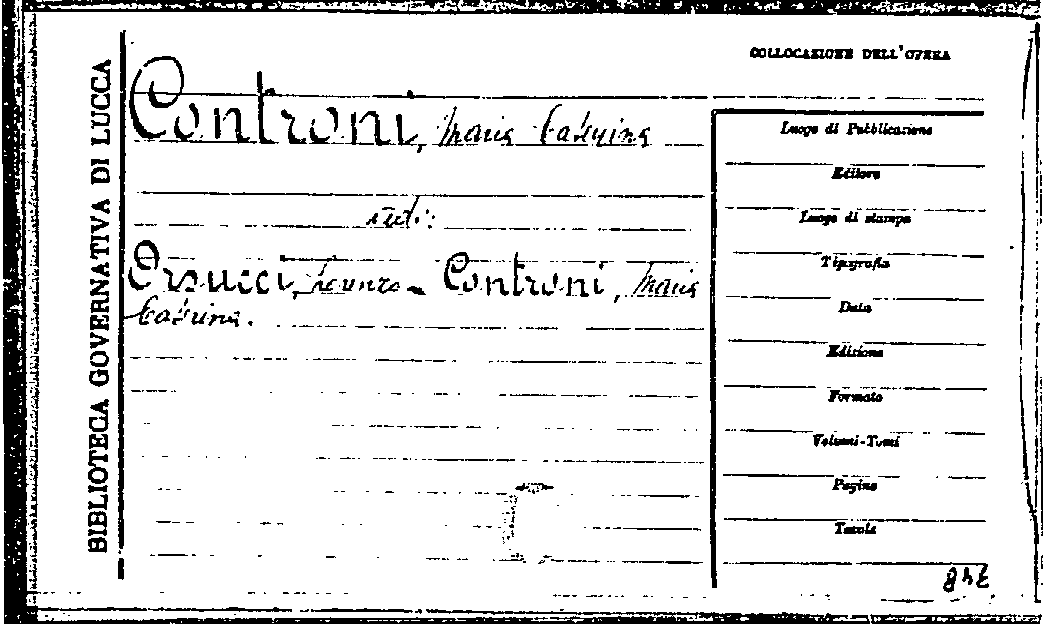 BIBLIOTECA GOVERNATIVA DI LUCCA
COLLOCAZIONE DELL'OPERA
Controni, Maria Caterina
vedi:
Orsucci, - Controni, Maria
Caterina.
Luogo di Pubblicazione
Editore
Luogo di stampa
Tipografia
Data
Edizione
Formato
Volumi-Tomi
Pagine
Tavole